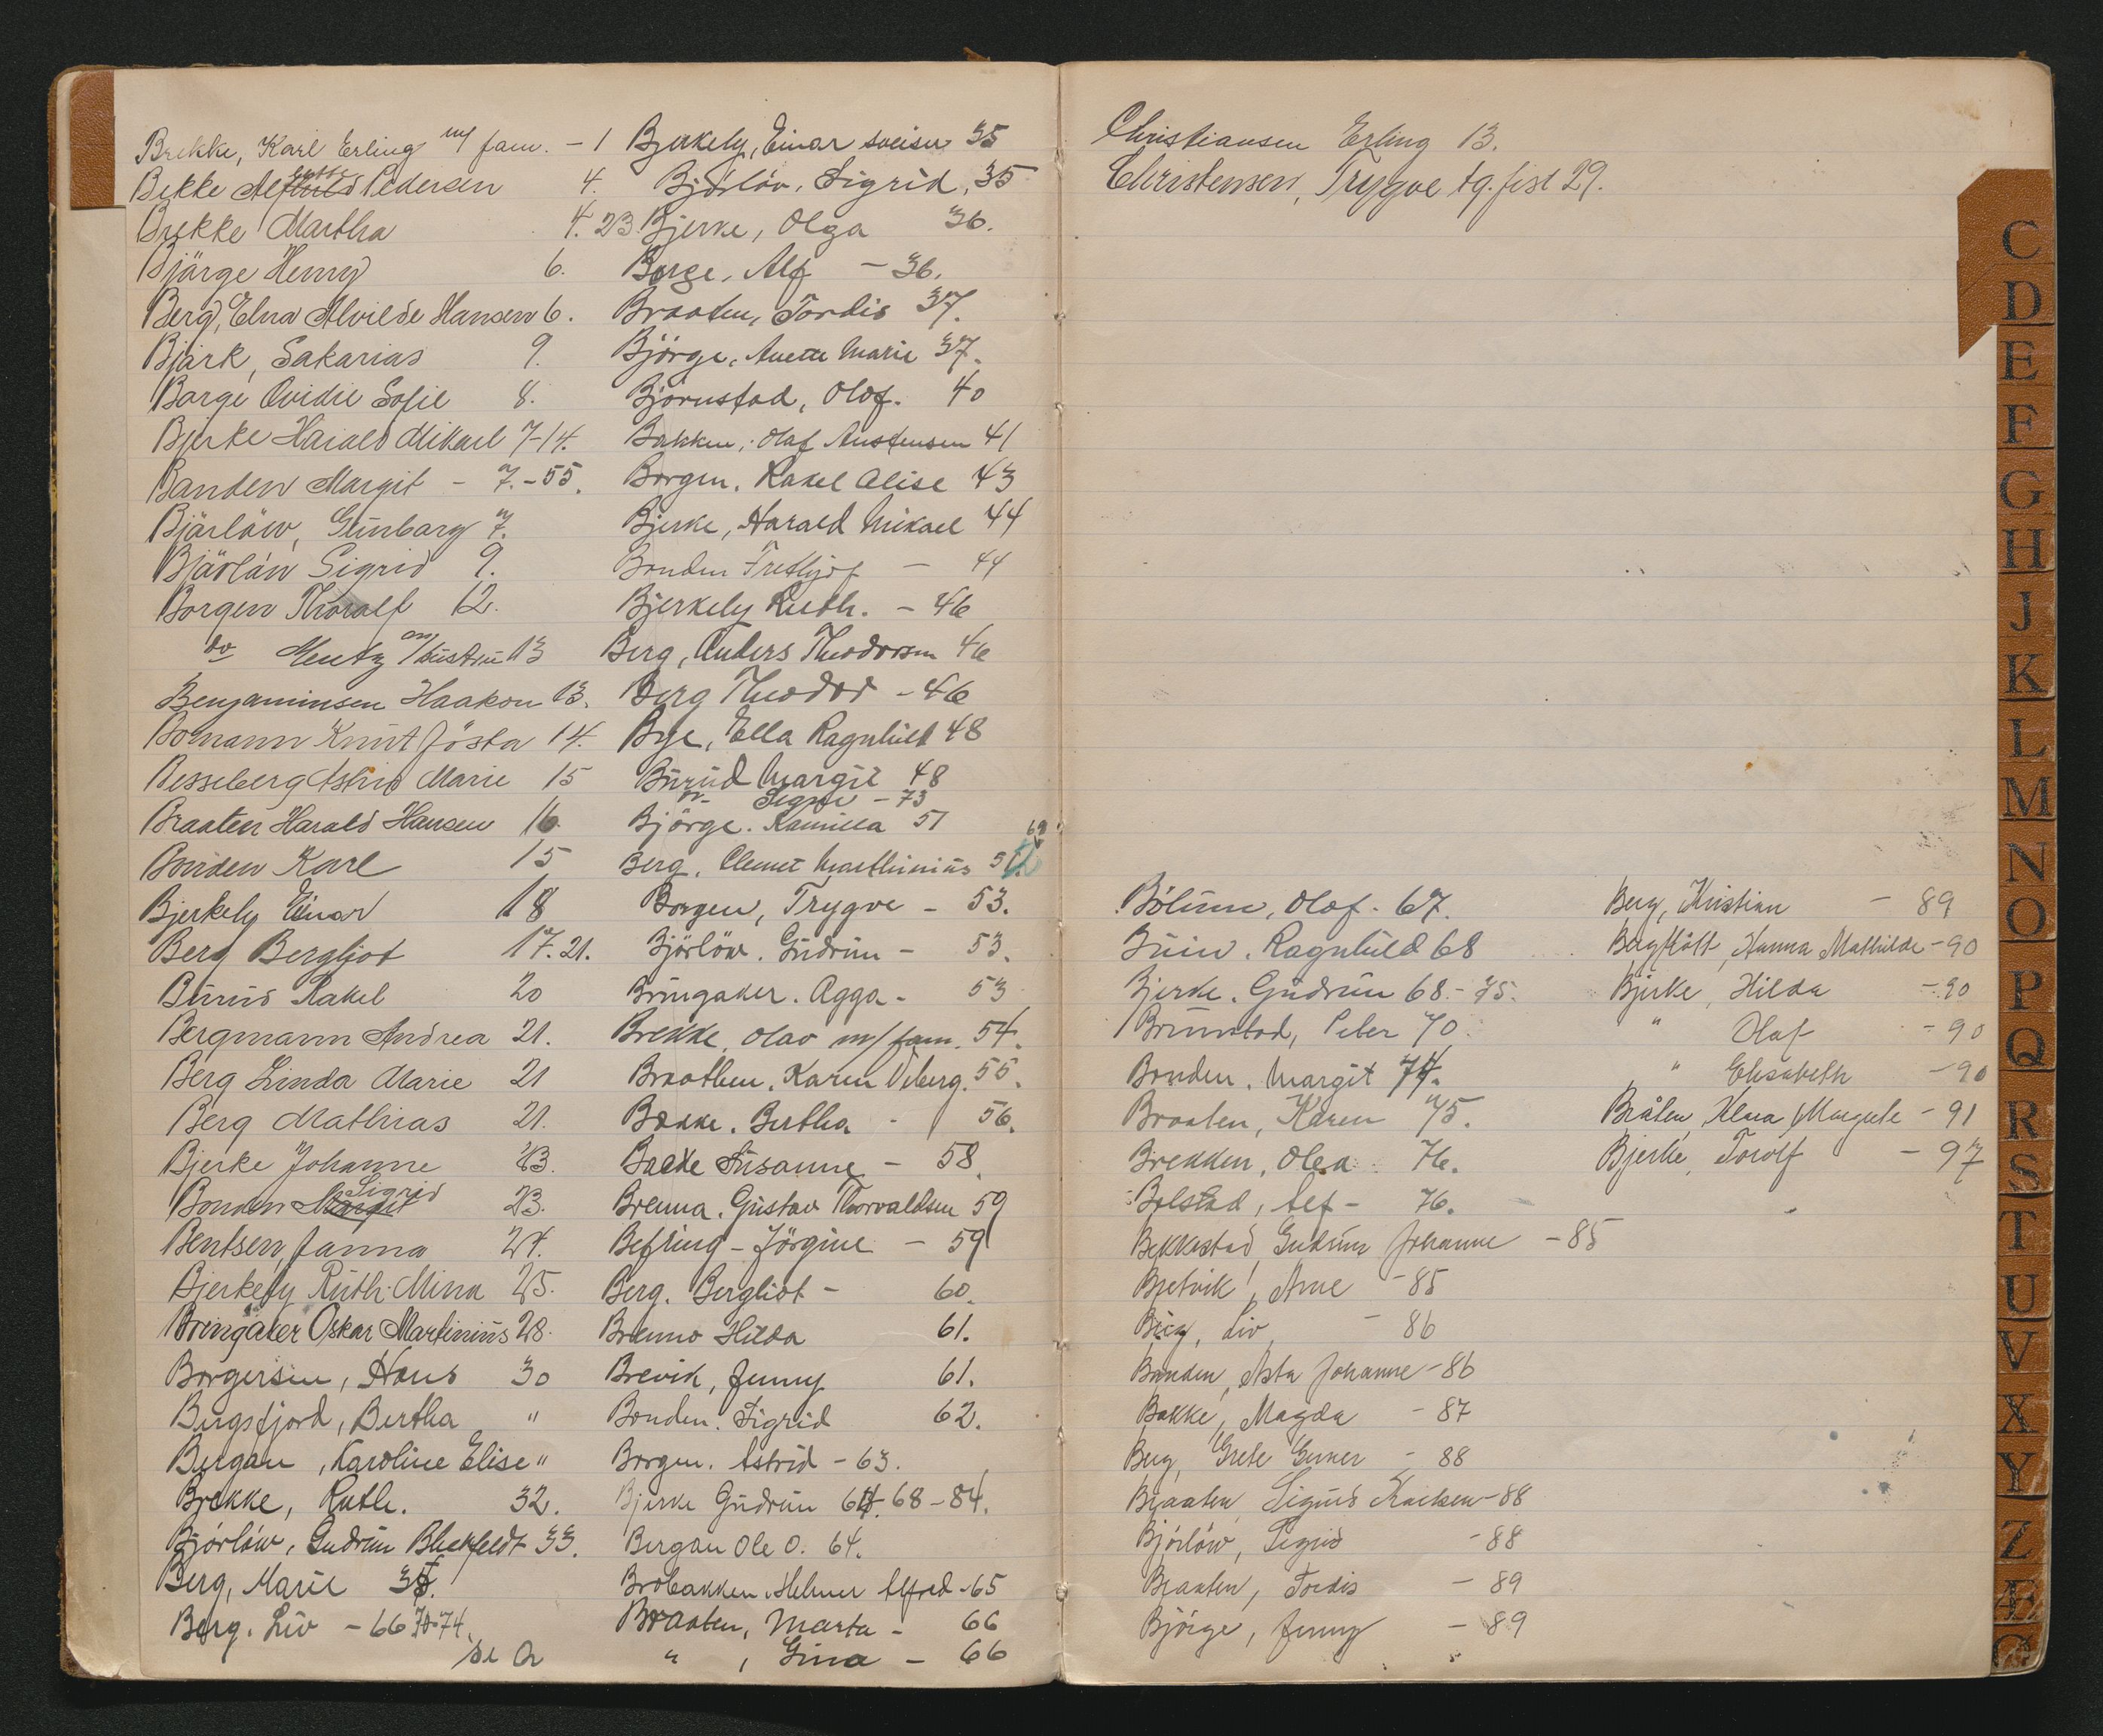 Brekke, Karl Erling m/ fam. - 1
Bekke Pedersen 4.
Brekke Martha 4. 23
Bjärge Henry 6.
Berg, Elna Alvilde Hansen 6.
Bjärk, Sakarias 9.
Borge Ovidie Sofie 8.
Bjerke Harald Mikael 7-14.
Banden Margit - 7.-55.
Bjärlöw, Gunbarg 7.
Bjärlöw Sigrid 9.
Borgen Thoralf 12.
do Mentz m/ hustru 13
Benjaminsen Haakon 13.
Bomann Knut Jösta 14.
Besseberg Astrid Marie 15
Braaten Harald Hansen 16.
Bonden Karl 15
Bjerkely Einar 18
Berg Bergljot 17.21.
Burud Rakel 20
Bergmann Andrea 21.
Berg Linda Marie 21
Berg Mathias 21.
Bjerke Johanne 23.
Bonden Margit Sigrid 23.
Bentsen, Janna 24.
Bjerkely Ruth. Mina 25.
Bringaker Oskar Martinius 28.
Borgersen, Hans 30
Bergsfjord, Bertha "
Bergan, Karoline Elise "
Brekke, Ruth. 32.
Bjórlöw, Gudrun Blekfeldt 33.
Berg, Marie
Berg. Liv - 66 70-74.
Bjerkely, Einar sveiser 35
Bjórlöv, Sigrid, 35
Bjerke, Olga 36.
Borge, Alf - 36.
Braaten, Tordis 37.
Björge, Marie 37.
Björnstad, Olof. 40
Bakken, Olaf Austensen 41
Borgen. Rakel Alise 43
Bjerke, Harald Mikael 44
Bonden Frethjof - 44
Bjerkely Ruth. - 46
Berg, Anders Theodorsen 46
Berg Theodor - 46
Bye, Ella Ragnhild 48
Burud Margit 48
"- Signe - 73
Björge. Kamilla 51
Berg, Clemet Marthinius 51. 69
Borgen, Trygve - 53.
Bjórlöw. Gudrun - 53.
Bringaker. Agga - 53
Brekke, Olav m/ fam. 54.
Braathen. Karen Viberg. 55.
Bakke. Bertha - 56.
Backe Susanne - 58.
Brenna. Gustav Thorvaldsen 59
Befring - Jörgine - 59
Berg. Bergliot - 60.
Brenno Hilda 61.
Brevik, Jenny 61.
Bonden. Sigrid 62.
Borgen. Astrid - 63.
Bjerke Gudrun 64. 68 - 84.
Bergan Ole O. 64.
Brobakken. Helmer Alfred - 65
Braaten, Marta - 66
", Gina - 66
Christiansen Erling 13.
Christensen, Trygve tg. fisl 29.
Bölum, Olof. 67.
Buin. Ragnhild 68
Bjerke. Gudrun 68. - 75.
Brunstad, Peter 70
Bonden. Margit 74.
Braaten, Karen 75.
Brekken, Olea 76.
Bolstad, Alf - 76.
Bekkestad, Gudrun Johanne - 85
Bretvik, Arne - 85
Berg, Liv - 86
Bonden, Asta Johanne - 86
Bakke, Magda - 87
Berg, Grete - 88
Braaten, Sigurd Karlsen - 88
Bjórlöw, Sigrid - 88
Braaten, Tordis - 89
Björge, Jenny - 89
Berg, Kristian - 89
Hanna Mathilde - 90
Bjerke, Hilda - 90
" Olaf - 90
" Elisabeth - 90
Bråten, Margrete - 91
Bjerke, Torolf - 97
C
D
E
F
G
H
J
K
L
M
N
O
P
Q
R
S
T
U
V
X
Y
Z
Æ
Ø